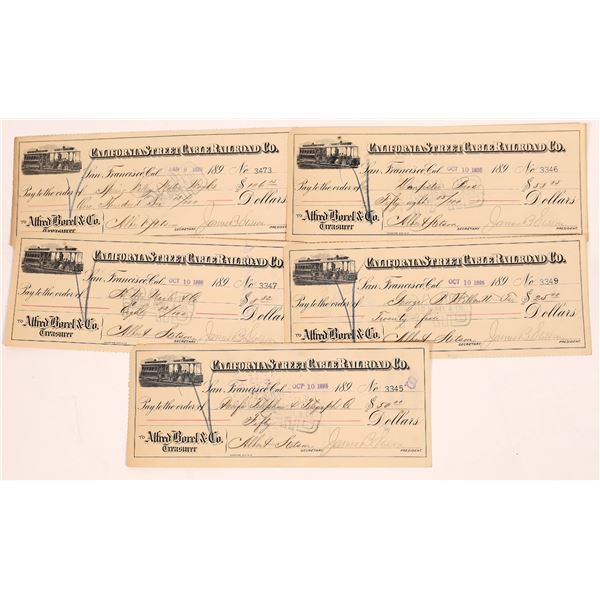 CALIFORNIA STREET CABLE RAILROAD CO.
San Francisco, Cal. JAN 9 1896 189 No 3473
Pay to the order of Spring Valley Water Works
One Hundred Six Dollars
TO Alfred Borel & Co.
Treasurer
SECRETARY
James B Stetson
PRESIDENT
CALIFORNIA STREET CABLE RAILROAD CO.
San Francisco, Cal. OCT 10 1895 189 No 3346
Pay to the order of
Fifty eight Dollars
TO Alfred Borel & Co.
Treasurer
Albert Stetson
SECRETARY
James B Stetson
PRESIDENT
San Francisco, Cal. OCT 10 1895 189 No 3347
Pay to the order of
Eight Dollars
TO Alfred Borel & Co.
Treasurer
Albert Stetson
SECRETARY
James B Stetson
CALIFORNIA STREET CABLE RAILROAD CO.
San Francisco, Cal. OCT 10 1895 189 No 3349
Pay to the order of George $25.00
Twenty five Dollars
TO Alfred Borel & Co.
Treasurer
Albert Stetson
SECRETARY
James B Stetson
PRESIDENT
CALIFORNIA STREET CABLE RAILROAD CO.
San Francisco, Cal. OCT 10 1895 189 No 3345
Pay to the order of Pacific Telephone & Telegraph Co $50.00
Fifty Dollars
TO Alfred Borel & Co.
Treasurer
Albert Stetson
SECRETARY
James B Stetson
PRESIDENT